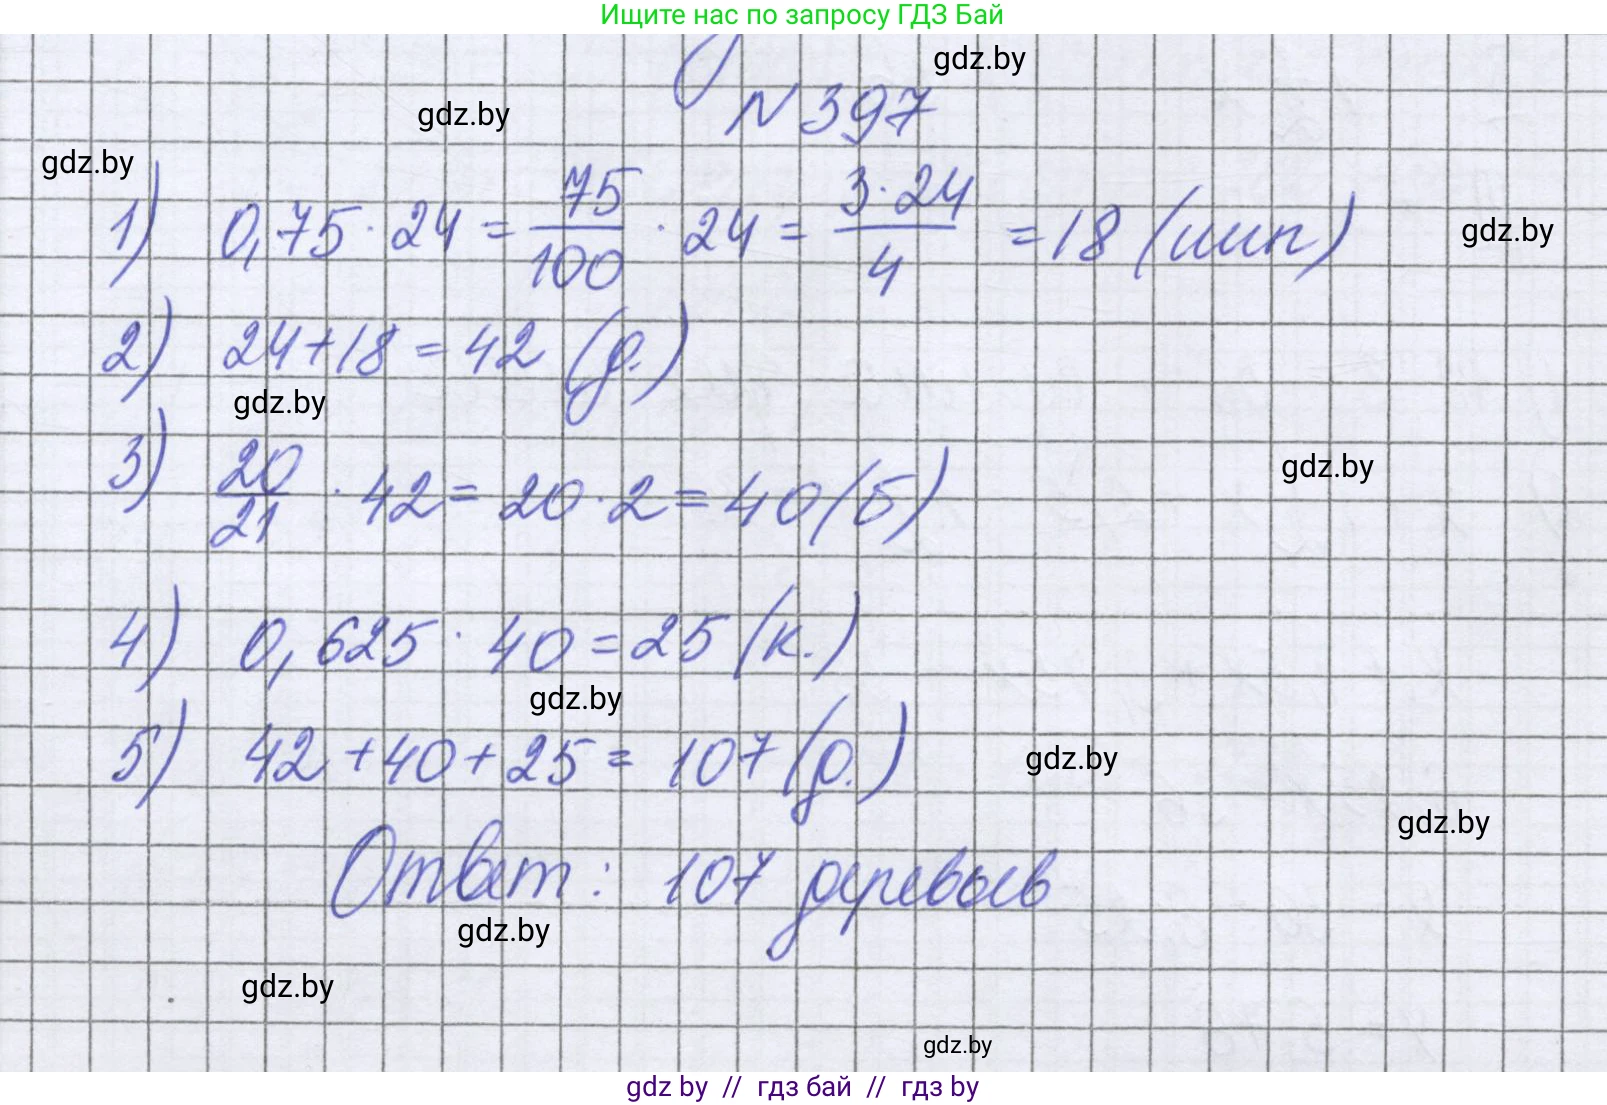 Ищите нас по запросу ГДЗ Бай
gdz.by
N 397
gdz.by
gdz.by
1) 0,75 · 24 = 75/100 · 24 = 3·24/4 = 18 (лип)
gdz.by
2) 24+18 = 42 (д.)
gdz.by
3) 20/21 · 42 = 20 · 2 = 40 (б)
gdz.by
4) 0,625 · 40 = 25 (к.)
gdz.by
5) 42 + 40 + 25 = 107 (д.)
gdz.by
gdz.by
Ответ: 107 деревьев
gdz.by
gdz.by
gdz.by
gdz by // гдз бай // гдз by